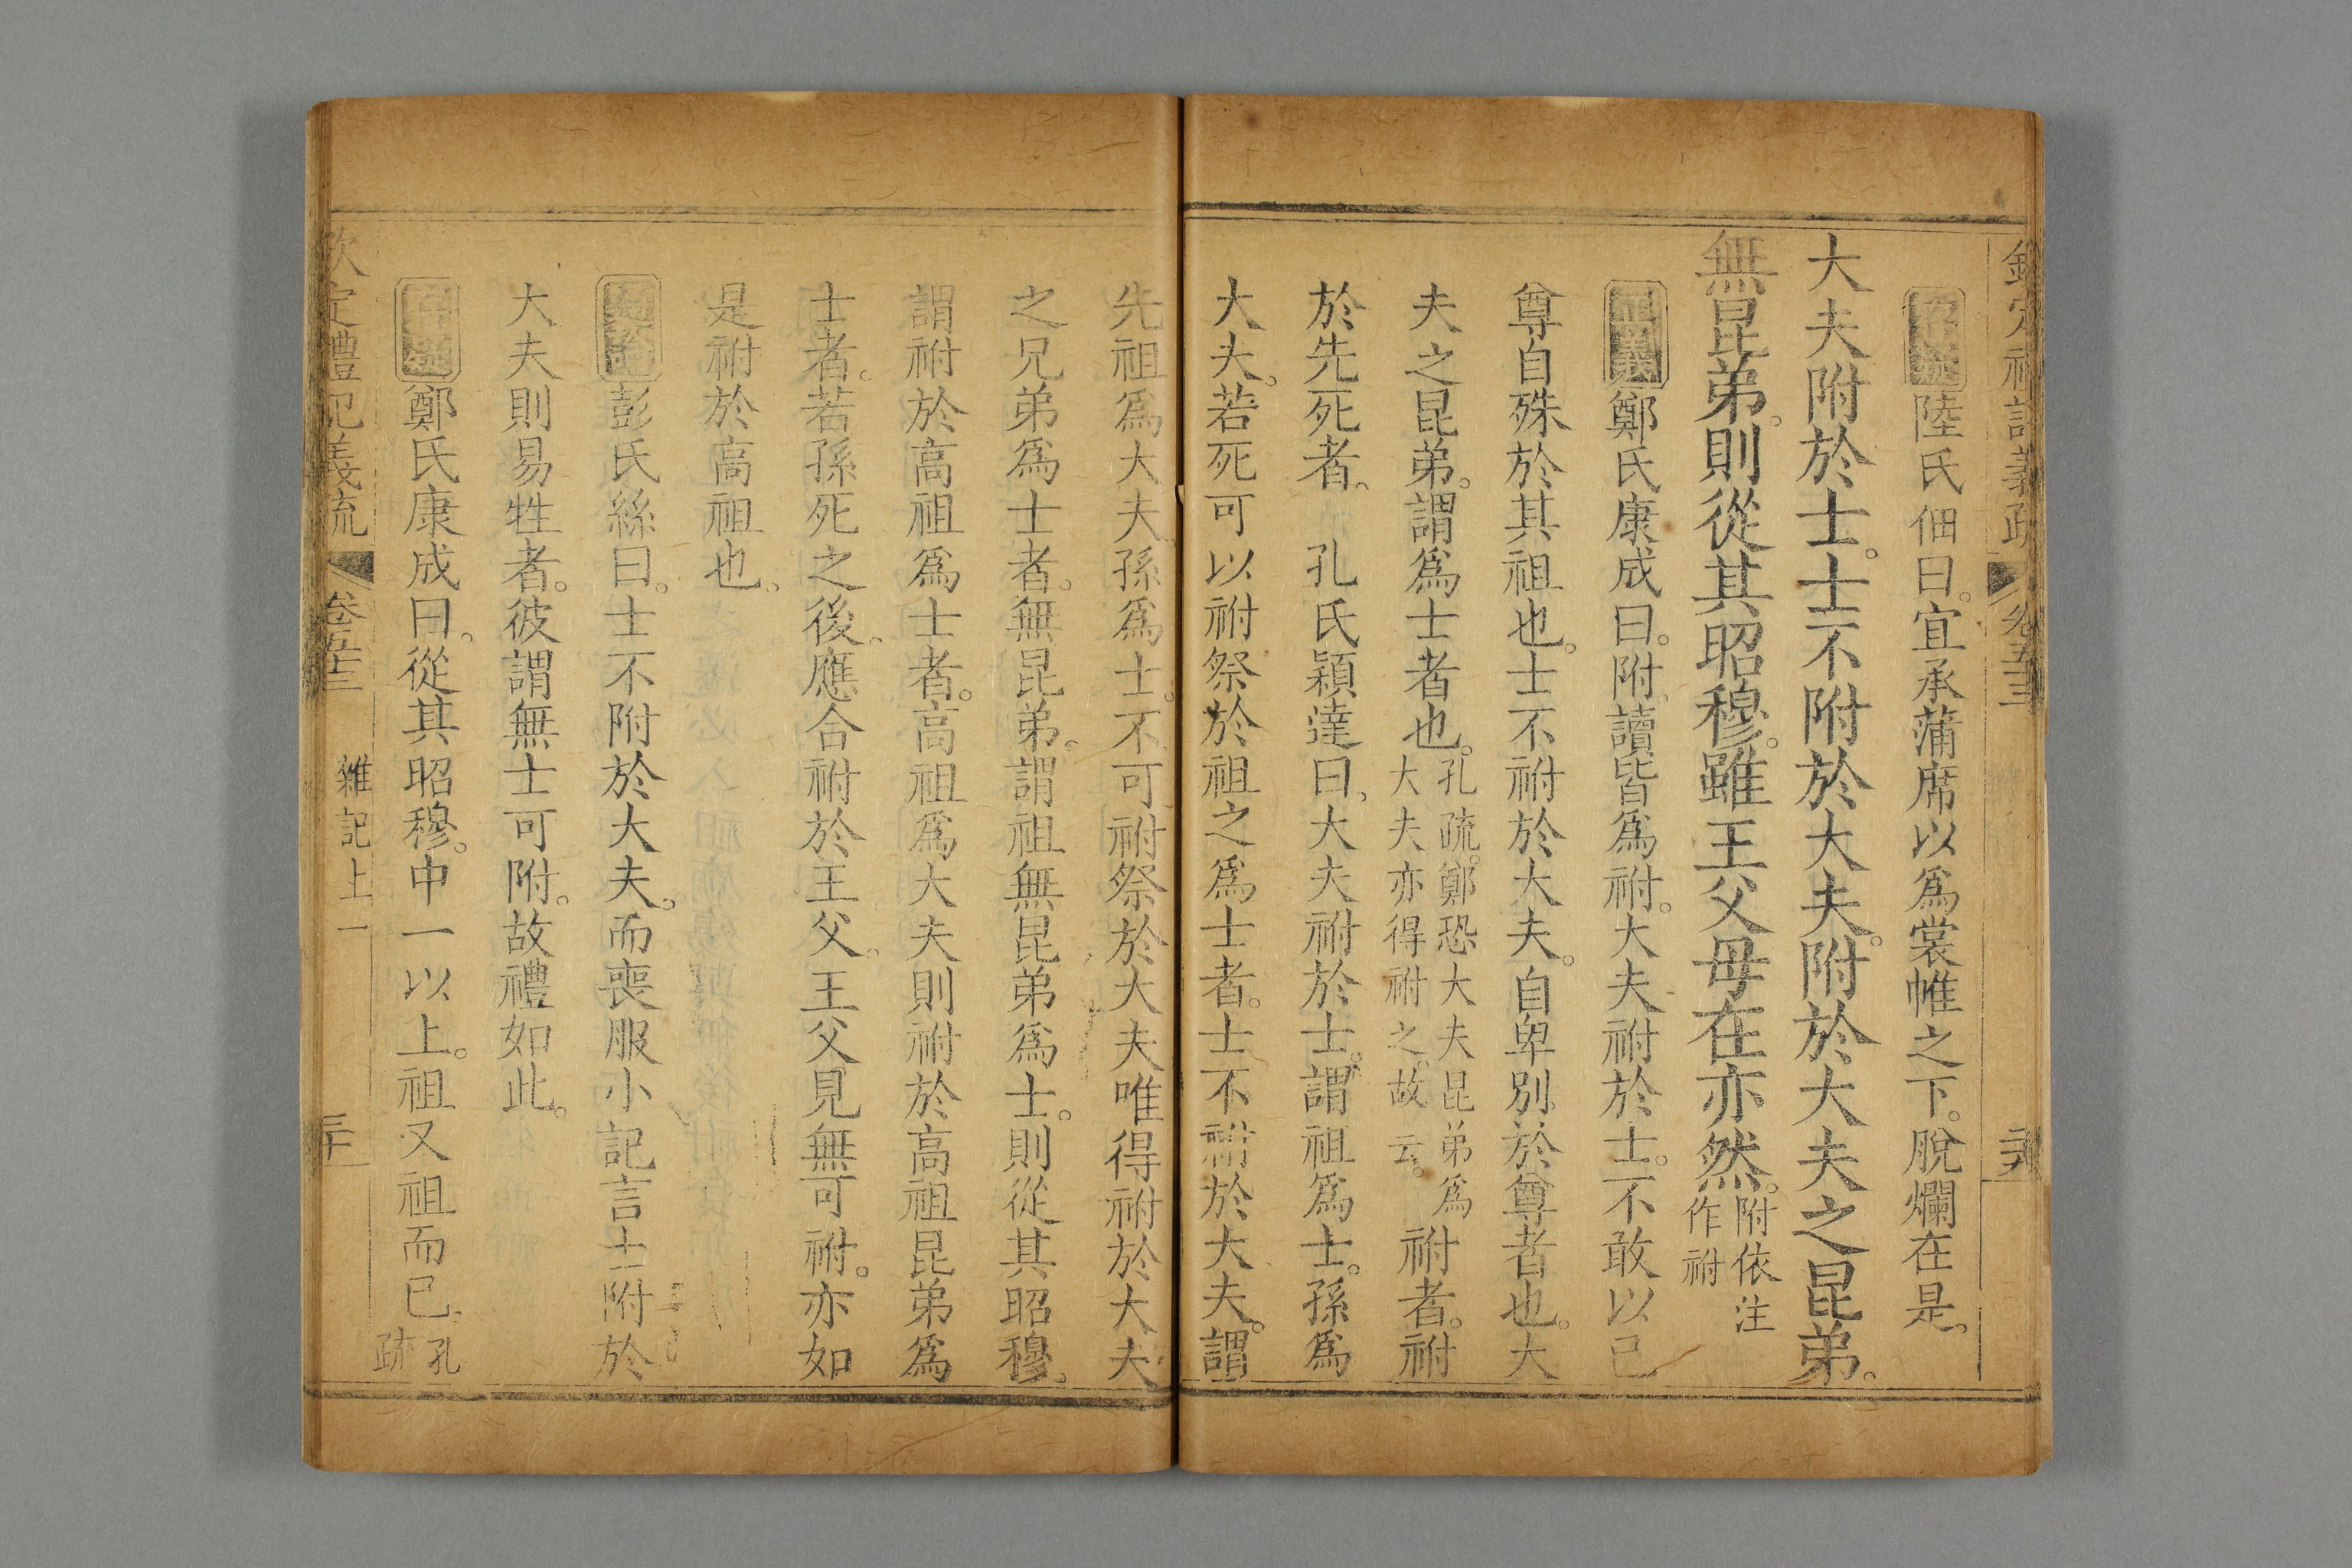 欽定禮記義疏 卷五十三
存疑 陸氏佃曰。宜承蒲席以爲裳帷之下。脫爛在是。
大夫附於士。士不附於大夫。附於大夫之昆弟。
無昆弟。則從其昭穆。雖王父母在亦然。附依注作祔
正義 鄭氏康成曰。附讀皆爲祔。大夫祔於士。不敢以己
尊自殊於其祖也。士不祔於大夫。自卑別於尊者也。大
夫之昆弟。謂爲士者也。孔疏。鄭恐大夫昆弟爲大夫亦得祔之。故云。祔者。祔
於先死者。 孔氏穎達曰。大夫祔於士。謂祖爲士。孫爲
大夫。若死可以祔祭於祖之爲士者。士不祔於大夫。謂
先祖爲大夫孫爲士。不可祔祭於大夫唯得祔於大夫
之兄弟爲士者。無昆弟。謂祖無昆弟爲士。則從其昭穆。
謂祔於高祖爲士者。高祖爲大夫則祔於高祖昆弟爲
士者。若孫死之後。應合祔於王父。王父見無可祔。亦如
是祔於高祖也。
通論 彭氏絲曰。士不附於大夫。而喪服小記言士附於
大夫則易牲者。彼謂無士可附。故禮如此。
存疑 鄭氏康成曰。從其昭穆。中一以上。祖又祖而已。孔疏
欽定禮記義疏 卷五十三 雜記上一 三十